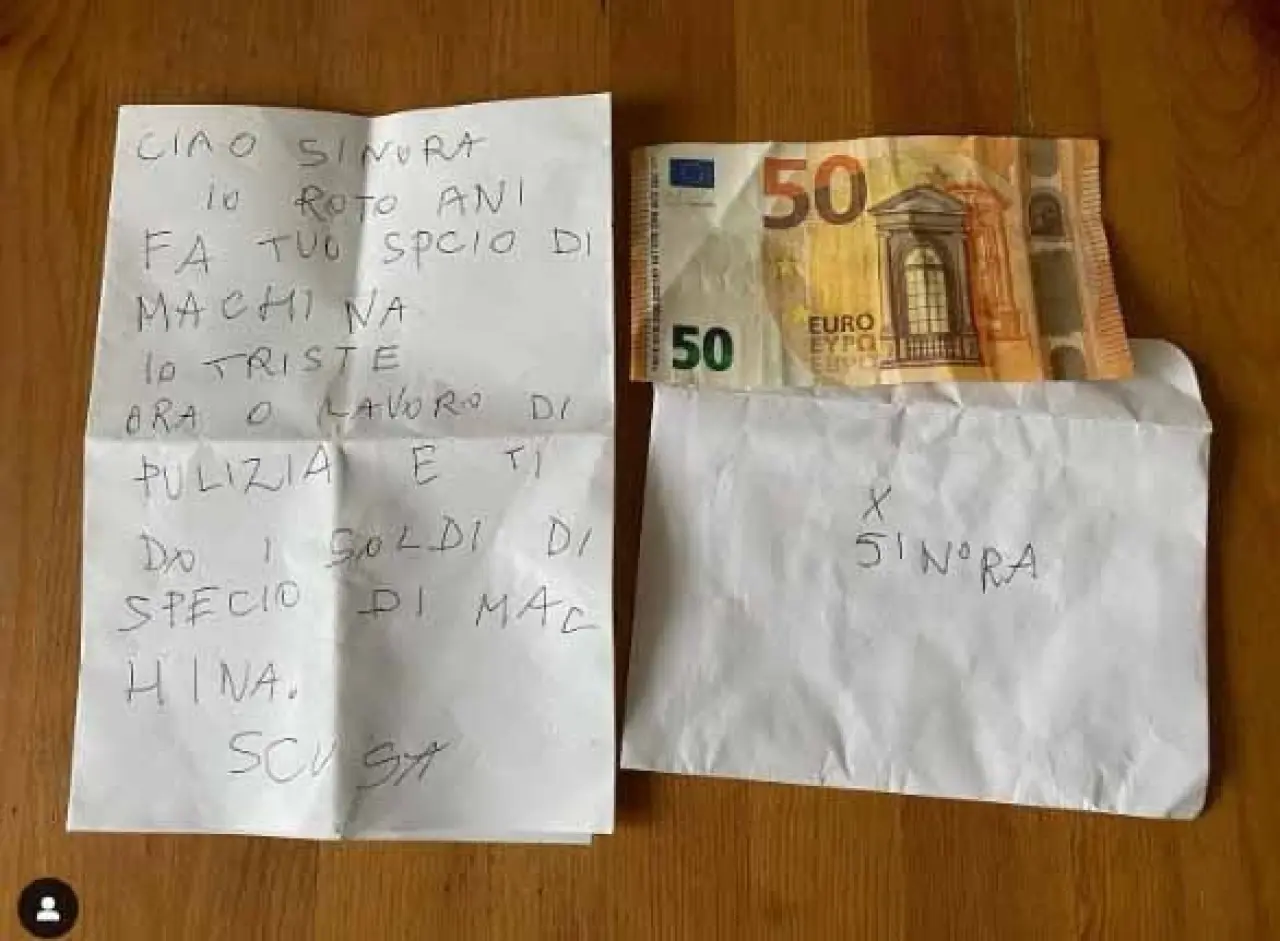 CIAO SINORA
IO ROTO ANI
FA TUO SPCIO DI
MACHINA
IO TRISTE
ORA O LAVORO DI
PULIZIA E TI
DO I SOLDI DI
SPECIO DI MAC
HINA.
SCUSA
50
50
EURO
ΕΥΡΩ
X
SINORA